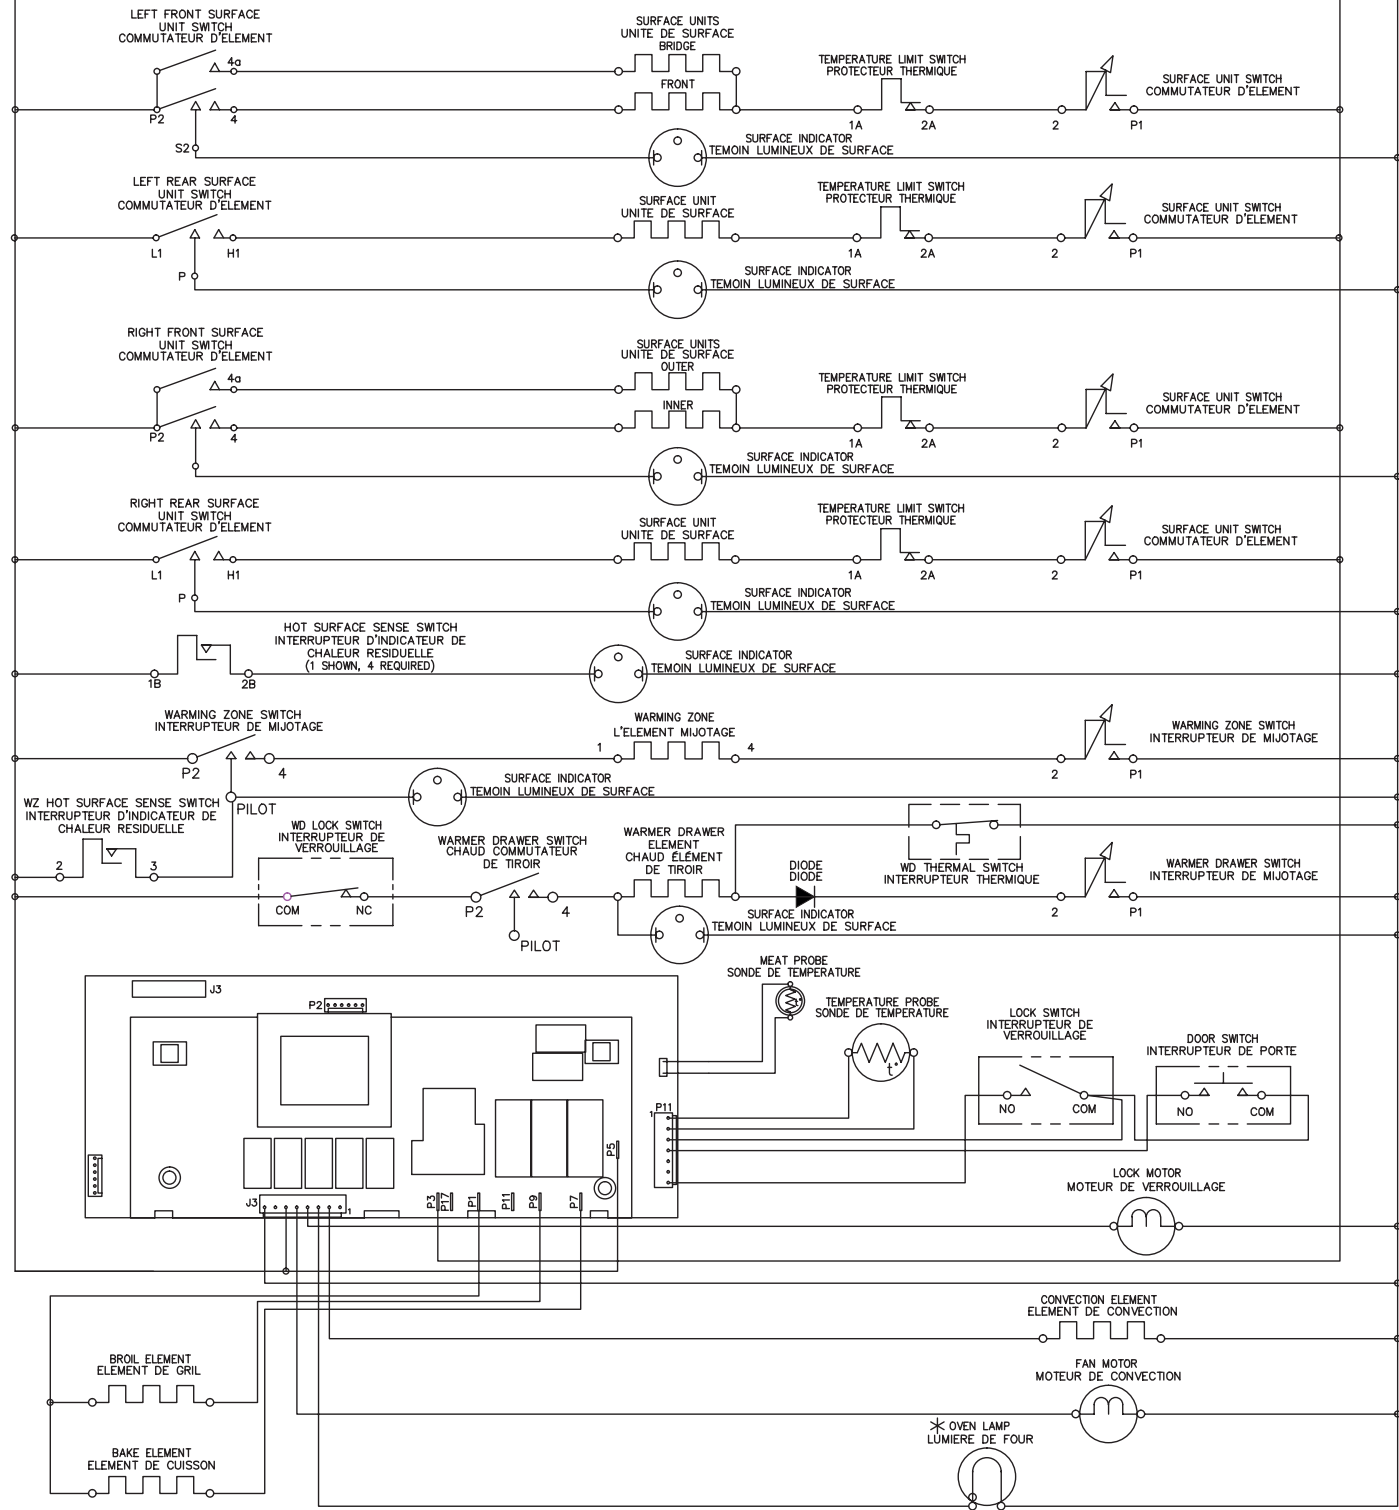 LEFT FRONT SURFACE
UNIT SWITCH
COMMUTATEUR D'ELEMENT
4a
P2
4
S2
SURFACE UNITS
UNITE DE SURFACE
BRIDGE
FRONT
TEMPERATURE LIMIT SWITCH
PROTECTEUR THERMIQUE
1A
2A
2
P1
SURFACE UNIT SWITCH
COMMUTATEUR D'ELEMENT
SURFACE INDICATOR
TEMOIN LUMINEUX DE SURFACE
LEFT REAR SURFACE
UNIT SWITCH
COMMUTATEUR D'ELEMENT
L1
H1
P
SURFACE UNIT
UNITE DE SURFACE
TEMPERATURE LIMIT SWITCH
PROTECTEUR THERMIQUE
1A
2A
2
P1
SURFACE UNIT SWITCH
COMMUTATEUR D'ELEMENT
SURFACE INDICATOR
TEMOIN LUMINEUX DE SURFACE
RIGHT FRONT SURFACE
UNIT SWITCH
COMMUTATEUR D'ELEMENT
4a
P2
4
SURFACE UNITS
UNITE DE SURFACE
OUTER
INNER
TEMPERATURE LIMIT SWITCH
PROTECTEUR THERMIQUE
1A
2A
2
P1
SURFACE UNIT SWITCH
COMMUTATEUR D'ELEMENT
SURFACE INDICATOR
TEMOIN LUMINEUX DE SURFACE
RIGHT REAR SURFACE
UNIT SWITCH
COMMUTATEUR D'ELEMENT
L1
H1
P
SURFACE UNIT
UNITE DE SURFACE
TEMPERATURE LIMIT SWITCH
PROTECTEUR THERMIQUE
1A
2A
2
P1
SURFACE UNIT SWITCH
COMMUTATEUR D'ELEMENT
SURFACE INDICATOR
TEMOIN LUMINEUX DE SURFACE
HOT SURFACE SENSE SWITCH
INTERRUPTEUR D'INDICATEUR DE
CHALEUR RESIDUELLE
(1 SHOWN, 4 REQUIRED)
1B
2B
SURFACE INDICATOR
TEMOIN LUMINEUX DE SURFACE
WARMING ZONE SWITCH
INTERRUPTEUR DE MIJOTAGE
P2
4
PILOT
WARMING ZONE
L'ELEMENT MIJOTAGE
1
4
2
P1
WARMING ZONE SWITCH
INTERRUPTEUR DE MIJOTAGE
SURFACE INDICATOR
TEMOIN LUMINEUX DE SURFACE
WZ HOT SURFACE SENSE SWITCH
INTERRUPTEUR D'INDICATEUR DE
CHALEUR RESIDUELLE
2
3
WD LOCK SWITCH
INTERRUPTEUR DE
VERROUILLAGE
COM
NC
WARMER DRAWER SWITCH
CHAUD COMMUTATEUR
DE TIROIR
P2
4
PILOT
WARMER DRAWER
ELEMENT
CHAUD ÉLÉMENT
DE TIROIR
DIODE
DIODE
WD THERMAL SWITCH
INTERRUPTEUR THERMIQUE
2
P1
WARMER DRAWER SWITCH
INTERRUPTEUR DE MIJOTAGE
SURFACE INDICATOR
TEMOIN LUMINEUX DE SURFACE
J3
P2
MEAT PROBE
SONDE DE TEMPERATURE
t°
TEMPERATURE PROBE
SONDE DE TEMPERATURE
t°
LOCK SWITCH
INTERRUPTEUR DE
VERROUILLAGE
NO
COM
DOOR SWITCH
INTERRUPTEUR DE PORTE
NO
COM
P11
1
P5
J3
1
P3
P17
P1
P11
P9
P7
LOCK MOTOR
MOTEUR DE VERROUILLAGE
CONVECTION ELEMENT
ELEMENT DE CONVECTION
BROIL ELEMENT
ELEMENT DE GRIL
FAN MOTOR
MOTEUR DE CONVECTION
OVEN LAMP
LUMIERE DE FOUR
BAKE ELEMENT
ELEMENT DE CUISSON